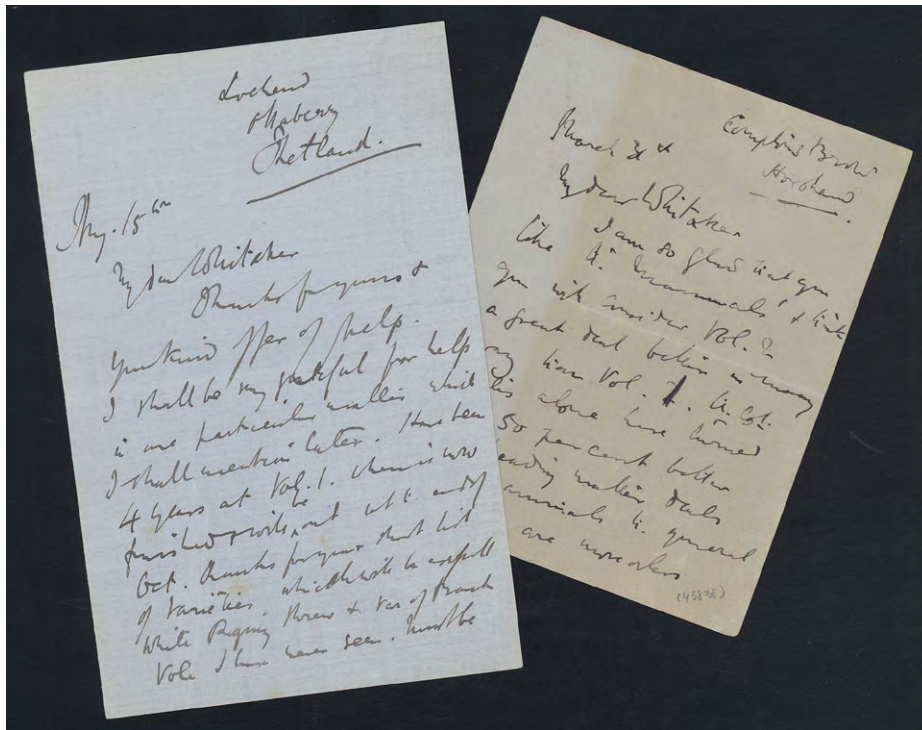 Lochend
Ollaberry
Shetland.
Aug. 15th
My dear Whitaker
Thanks for yours &
your kind offer of help.
I shall be very grateful for help
in one particular matter which
I shall mention later. Have been
4 years at Vol. 1. which is now
finished & will be out at t. end of
Oct. Thanks for your short list
of varieties, which will be useful
White Pigmy Shrew & Var of Bank
Vole I have never seen. Must be
Compton's Brow
Horsham.
March 31st
My dear Whitaker
I am so glad that you
like t. 'Mammals' & think
you will consider Vol. 2
a great deal better in many
way than Vol. 1. t. Col.
alone have turned
50 per cent better
reading matter deals
animals t. general
are more or less
(43838)